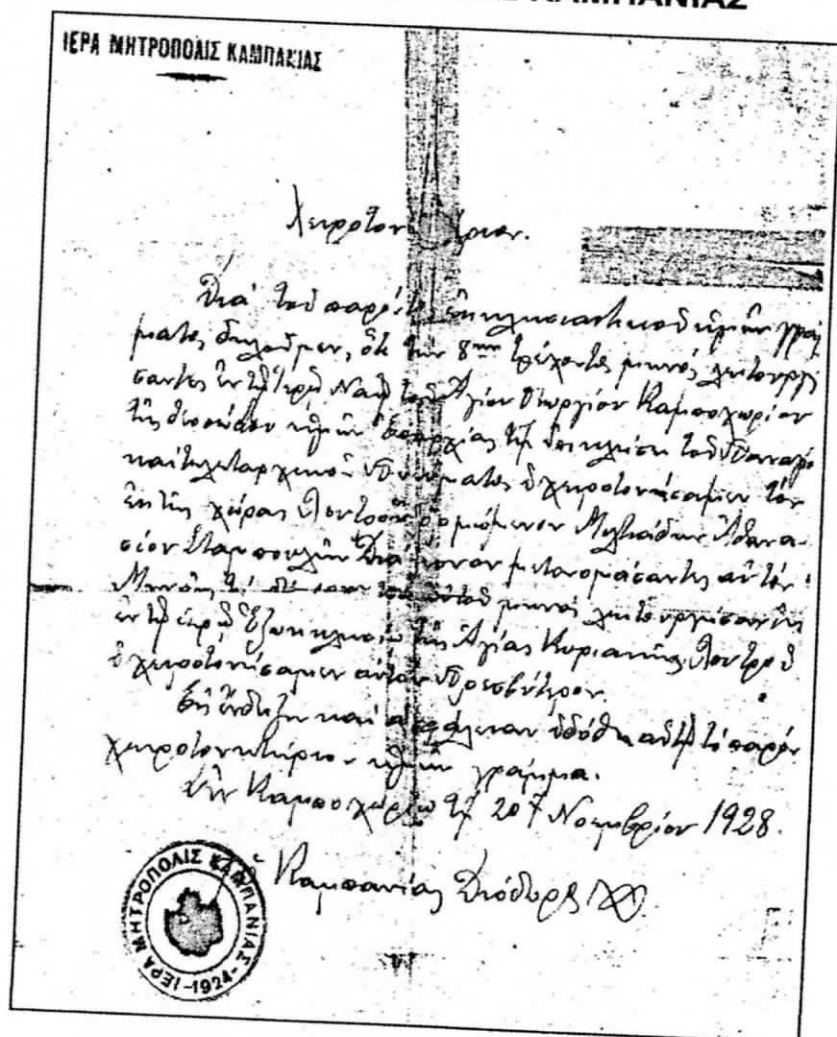 ΚΑΜΠΑΝΙΑΣ
ΙΕΡΑ ΜΗΤΡΟΠΟΛΙΣ ΚΑΜΠΑΝΙΑΣ
Διὰ τοῦ παρόντος ἐκκλησιαστικοῦ ἡμῶν γράμ
ματος δηλοῦμεν, ὅτι τὴν 8ην τρέχοντος μηνός λειτουργή
σαντες ἐν τῷ Ἱερῷ Ναῷ τοῦ Ἁγίου Γεωργίου Καμποχωρίου
τῆς ἡμῶν Ἐπαρχίας τῇ ἐπικλήσει τοῦ Παναγίου
καὶ τελεταρχικοῦ Πνεύματος ἐχειροτονήσαμεν τὸν
ἐκ τῆς χώρας Λουτροῦ Μιλτιάδην Ἀθανα-
σίου Διάκονον μετονομάσαντες αὐτόν
τοῦ αὐτοῦ μηνός λειτουργήσαντες
ἐν τῷ ἱερῷ Ἐξωκκλησίῳ τῆς Ἁγίας Κυριακῆς Λουτροῦ
ἐχειροτονήσαμεν αὐτὸν Πρεσβύτερον.
Εἰς ἔνδειξιν καὶ ἀσφάλειαν ἐδόθη αὐτῷ τὸ παρόν
χειροτονητήριον ἡμῶν γράμμα.
Ἐν Καμποχωρίῳ τῇ 20ῇ Νοεμβρίου 1928.
Καμπανίας Διόδωρος
ΙΕΡΑ ΜΗΤΡΟΠΟΛΙΣ ΚΑΜΠΑΝΙΑΣ -1924-